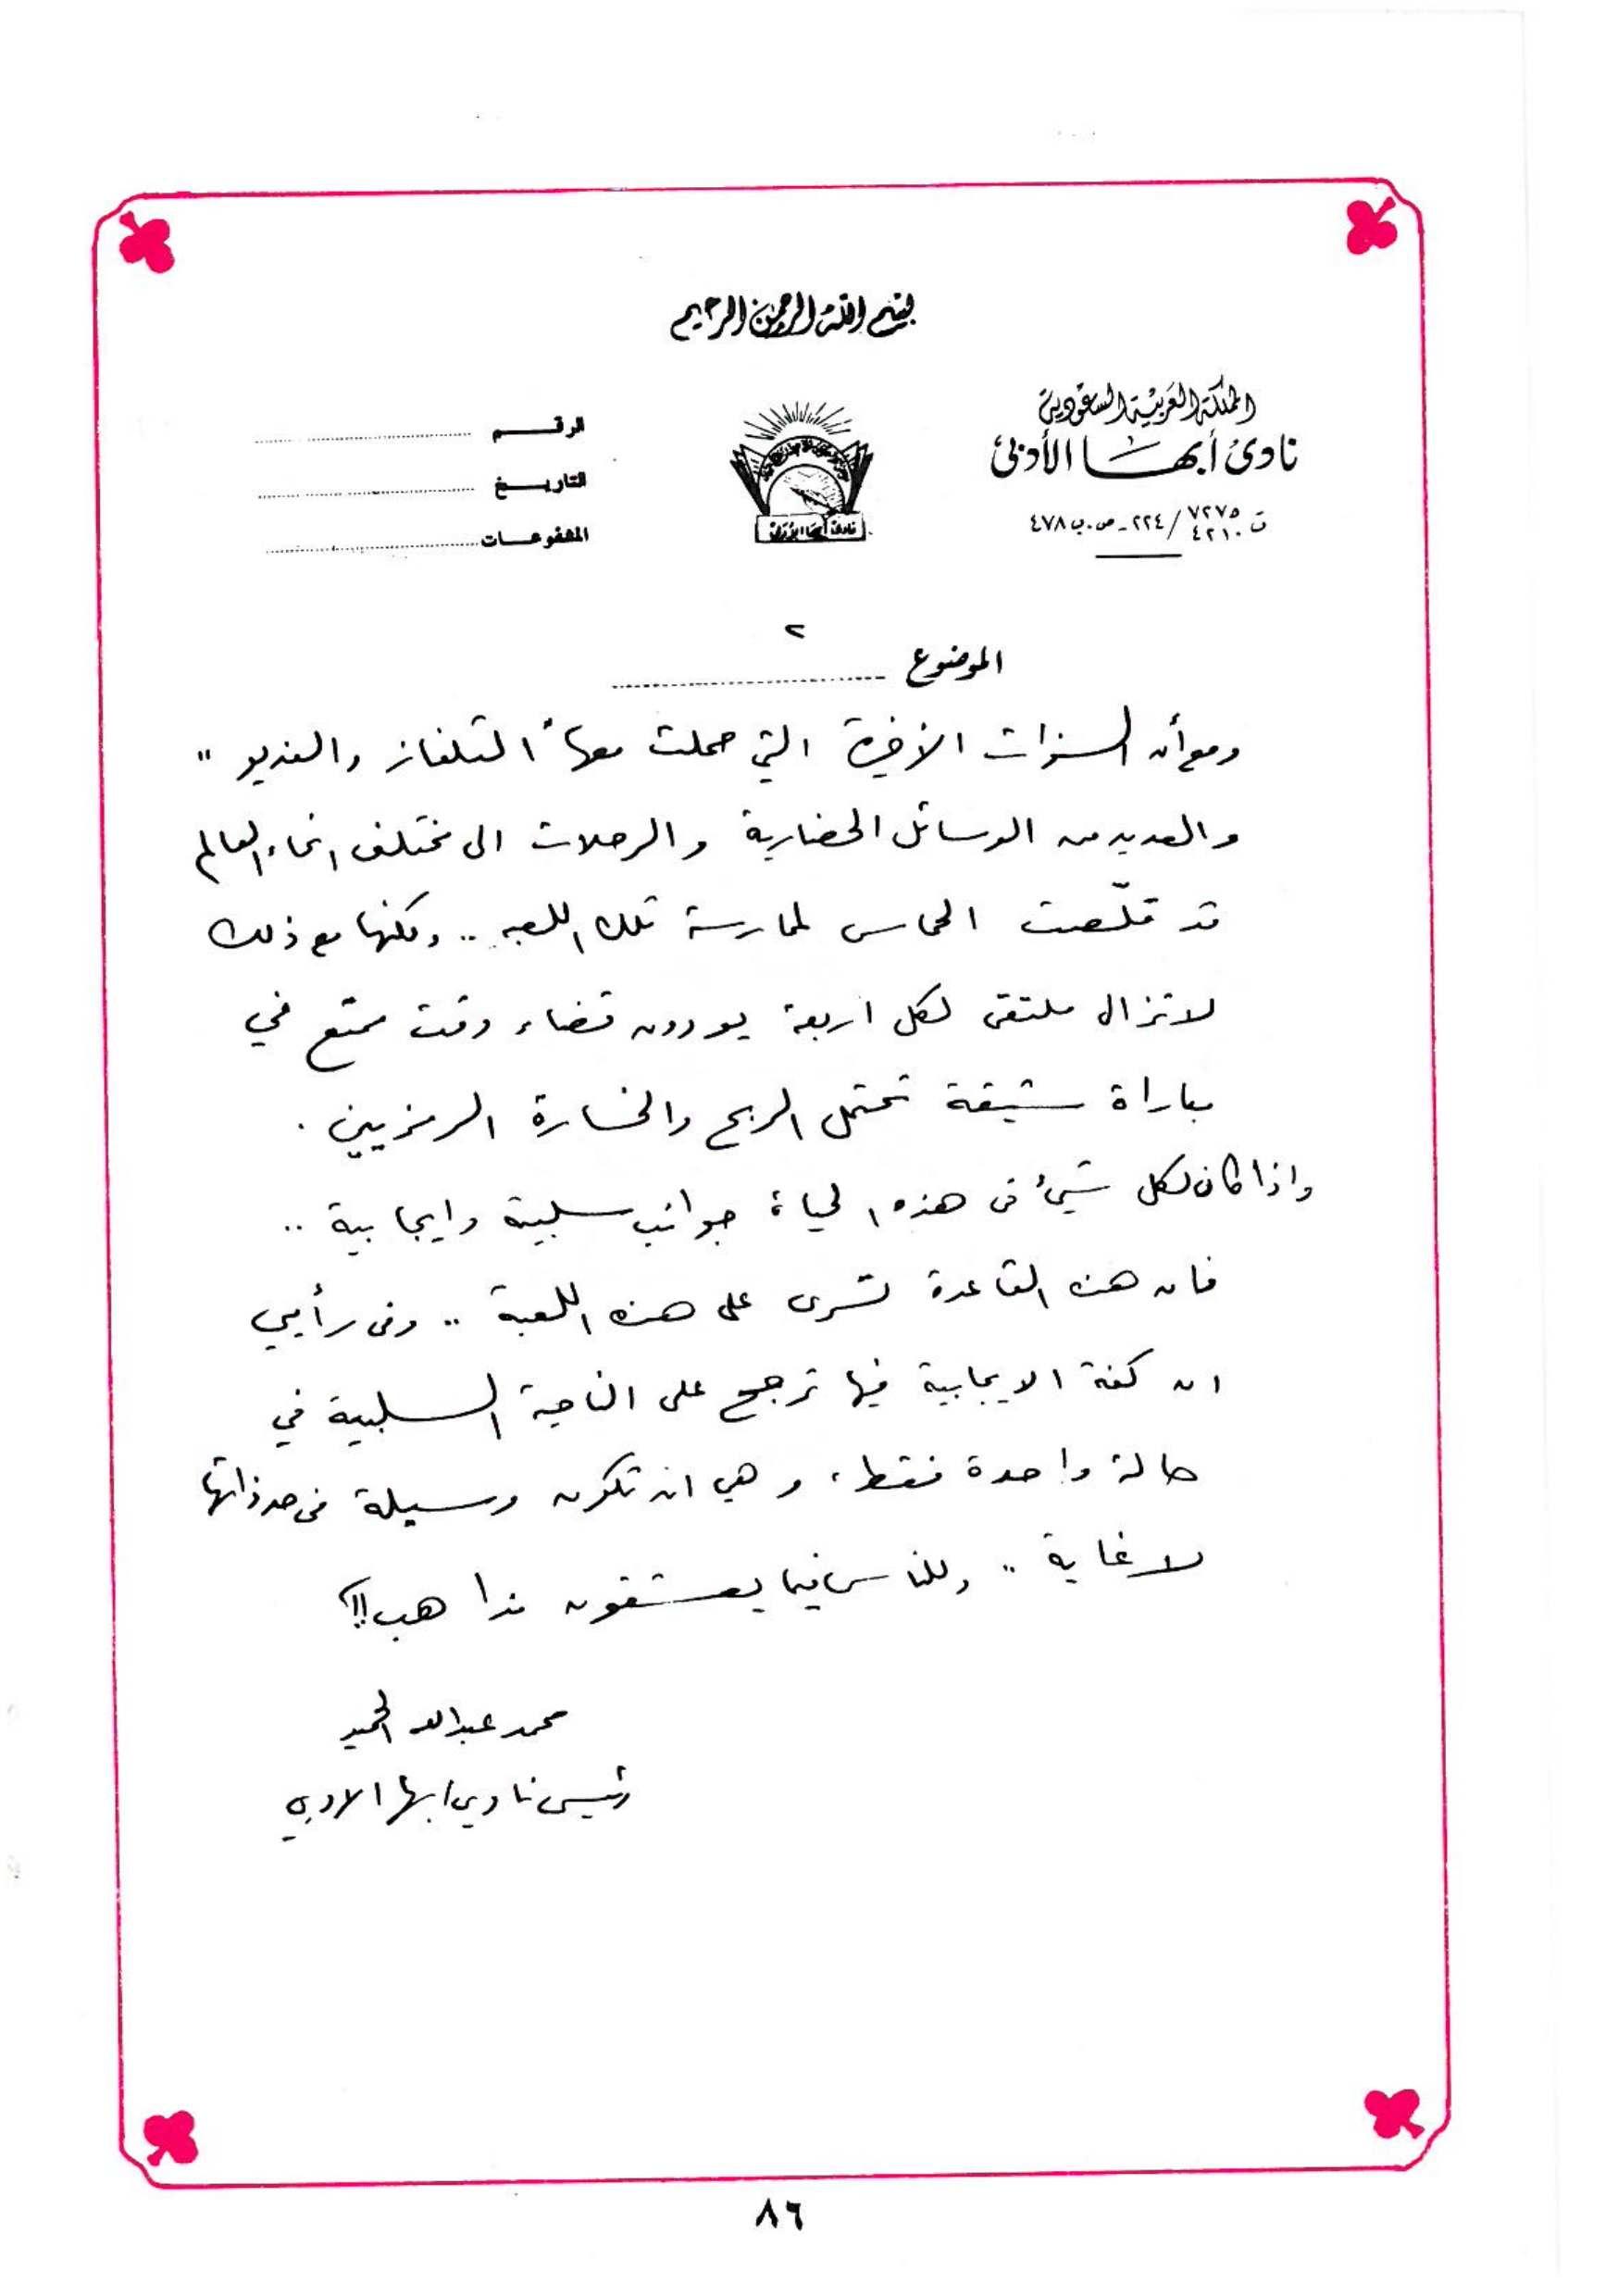 بسم الله الرحمن الرحيم
المملكة العربية السعودية
نادى أبها الأدبى
ت ٧٢٧٥ / ٢٢٤ - ص.ب ٤٧٨
٤٢١٠
الرقم
التاريخ
المشفوعات
نادى أبها الأدبى
٢
الموضوع
ومع أن السنوات الأخيرة التي حملت معها " التلفاز والفديو "
والعديد من الوسائل الحضارية والرحلات الى مختلف انحاء العالم
قد قلّصت الحماس لممارسة تلك اللعبه .. ولكنها مع ذلك
لاتزال ملتقى لكل اربعة يودون قضاء وقت ممتع في
مباراة شيقة تحتمل الربح والخسارة الرمزيين .
واذا كان لكل شيئ فى هذه الحياة جوانب سلبية وايجابية ..
فان هذه القاعدة تسرى على هذه اللعبة .. وفى رأيي
ان كفة الايجابية فيها ترجح على الناحية السلبية في
حالة واحدة فقط، وهي ان تكون وسيلة فى حد ذاتها
لا غاية .. وللناس فيما يعشقون مذاهب !!؟
محمد عبدالله الحميد
رئيس نادي ابها الادبي
٨٦